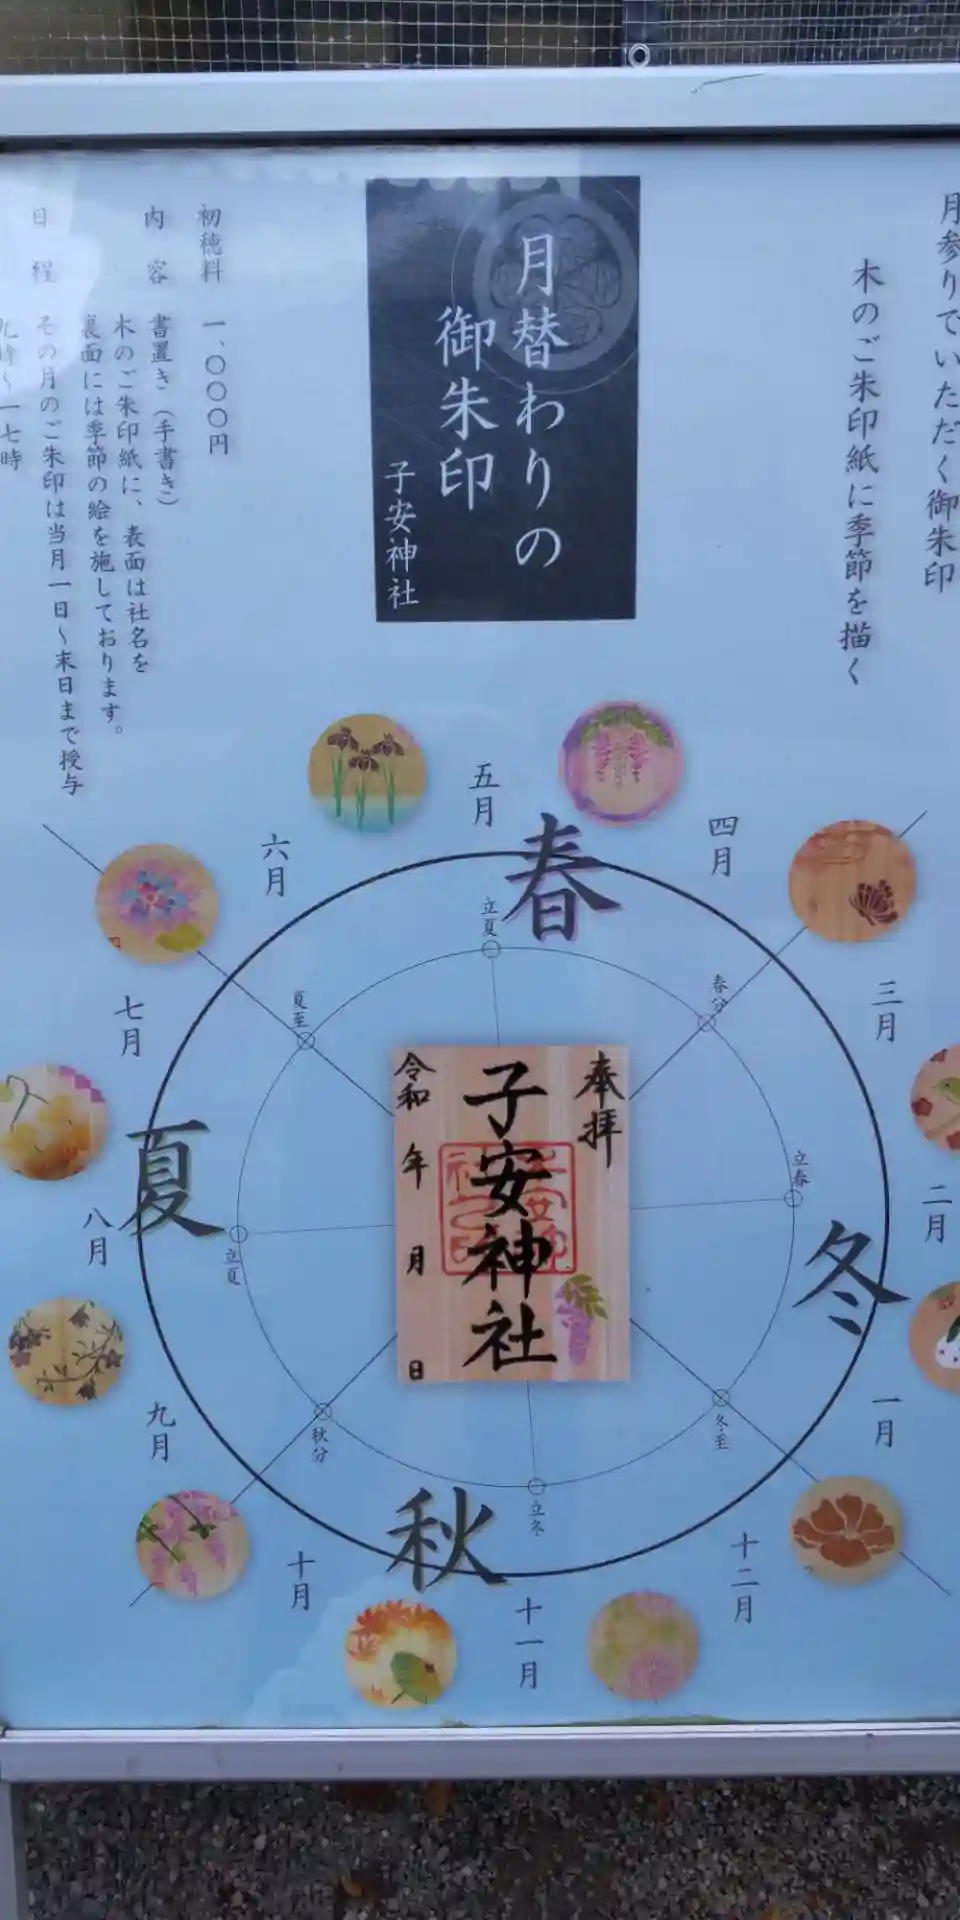 月参りでいただく御朱印
木のご朱印紙に季節を描く
月替わりの
御朱印
子安神社
初穂料 一、〇〇〇円
内容 書置き（手書き）
木のご朱印紙に、表面は社名を
裏面には季節の絵を施しております。
日程 その月のご朱印は当月一日～末日まで授与
九時～一七時
春
夏
秋
冬
一月
二月
三月
四月
五月
六月
七月
八月
九月
十月
十一月
十二月
立春
春分
立夏
夏至
立夏
秋分
立冬
冬至
奉拝
子安神社
令和 年 月 日